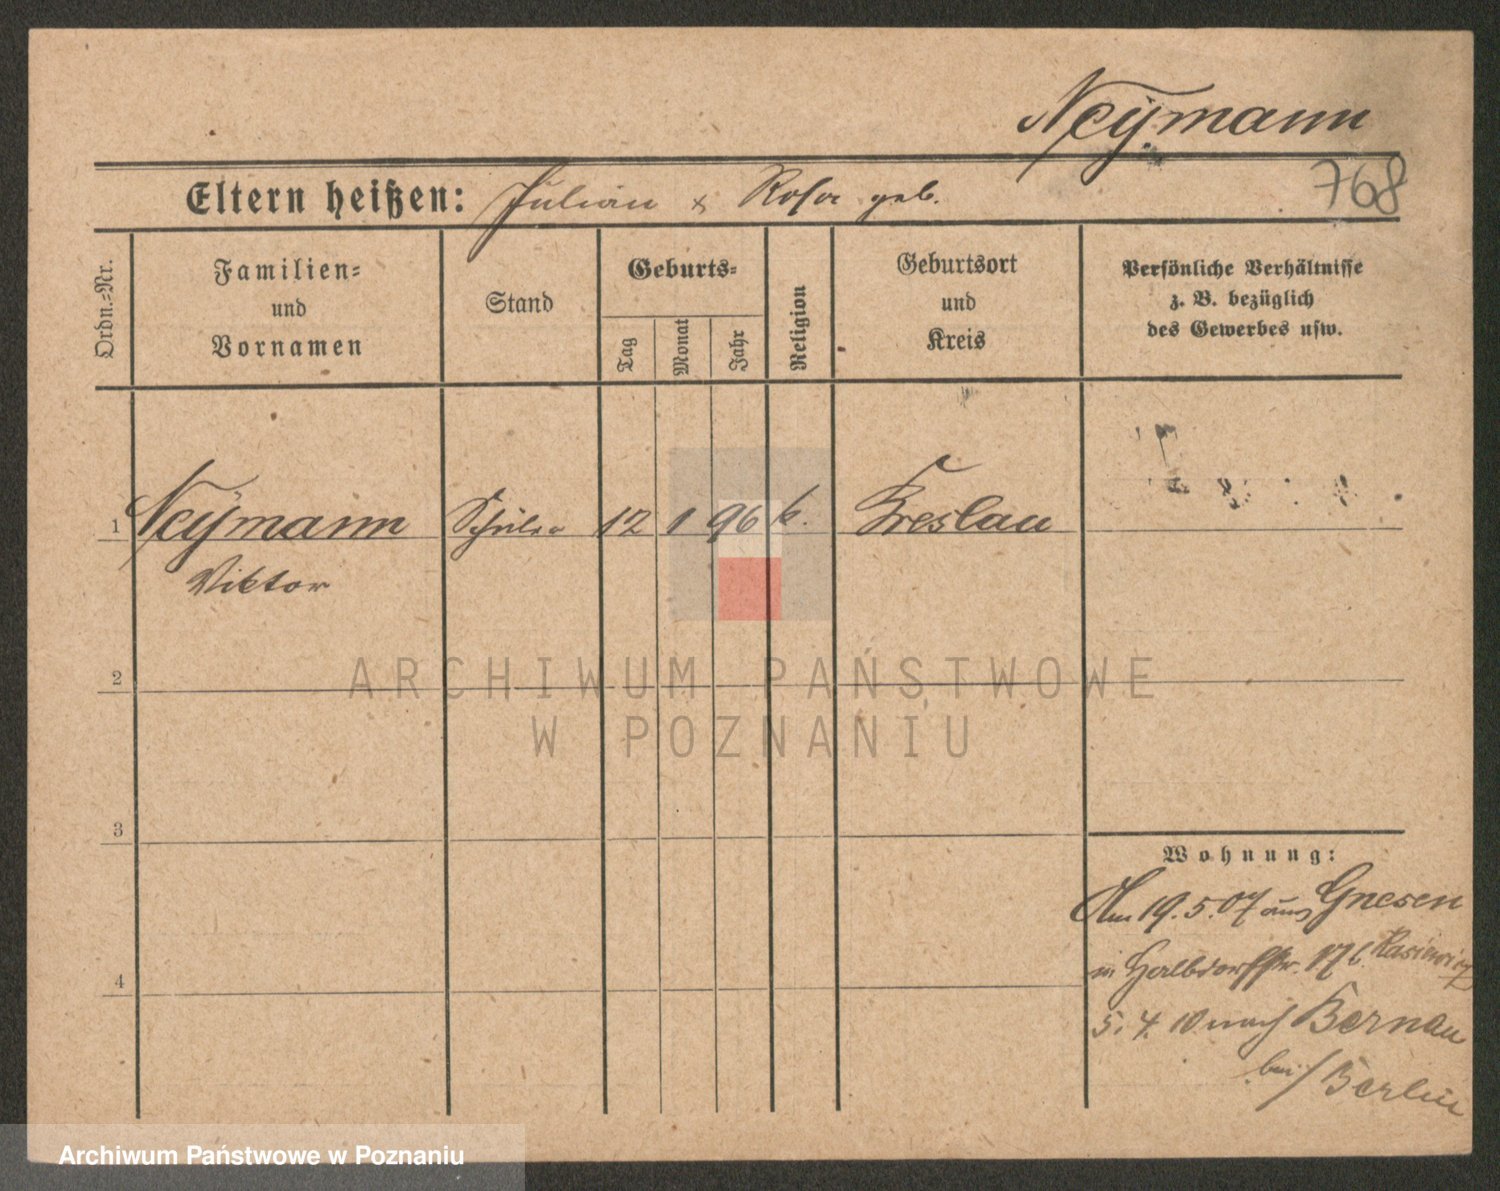 Neÿmann
768
Eltern heißen: Julian & Rosa geb.
Ordn.=Nr.
Familien=
und
Vornamen
Stand
Geburts=
Tag
Monat
Jahr
Religion
Geburtsort
und
Kreis
Persönliche Verhältnisse
z. B. bezüglich
des Gewerbes usw.
1 Neÿmann Schüler 12 1 96 k. Breslau
Viktor
2
3
4
Wohnung:
Am 19.5.07 aus Gnesen
in Halbdorffstr. 17 b. Kasiewicz
5.4.10 nach Bernau
bei/Berlin
ARCHIWUM PAŃSTWOWE
W POZNANIU
Archiwum Państwowe w Poznaniu